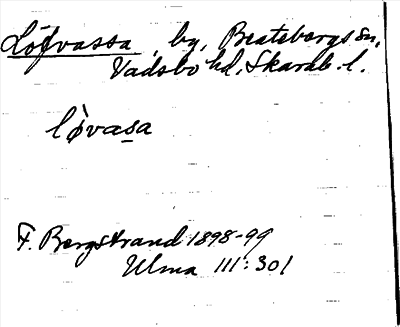 Löfvassa, by, Beatebergs sn,
Vadsbo hd. Skarab. l.
lø̀vasa
F. Bergstrand 1898-99
Ulma 111:301